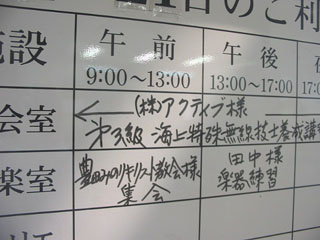 1日のご利
施設
午前
9:00〜13:00
午後
13:00〜17:00
会室
(株)アクティブ様
第3級 海上特殊無線技士養成講
楽室
豊田みのりキリスト教会様
集会
田中様
楽器練習